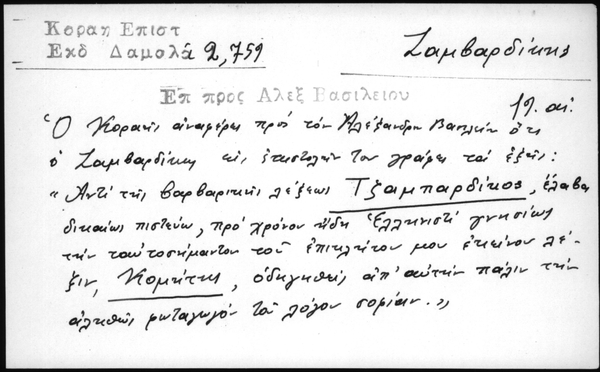 Κοραη Επιστ
Εκδ Δαμαλά 2,759
Ζαμβαρδίκης
Επ προς Αλεξ Βασιλειου
19. αἰ.
Ὁ Κοραῆς ἀναφέρει πρὸς τὸν Ἀλέξανδρον Βασιλείου ὅτι
ὁ Ζαμβαρδίκης εἰς ἐπιστολὴν του γράφει τὰ ἑξῆς:
« Ἀντὶ τῆς βαρβαρικῆς λέξεως Τζαμπαρδίκος, ἔλαβα
δικαίως πιστεύω, πρὸ χρόνου ἤδη Ἑλληνιστὶ γνησίως
τὴν ταὐτοσήμαντον τοῦ ἐπικλήτου μου ἐκείνου λέ-
ξιν, Κομήτης, ὁδηγηθεὶς ἀπ' αὐτὴν πάλιν τὴν
ἀληθῶς φωταγωγὸν τοῦ λόγου σοφίαν. »